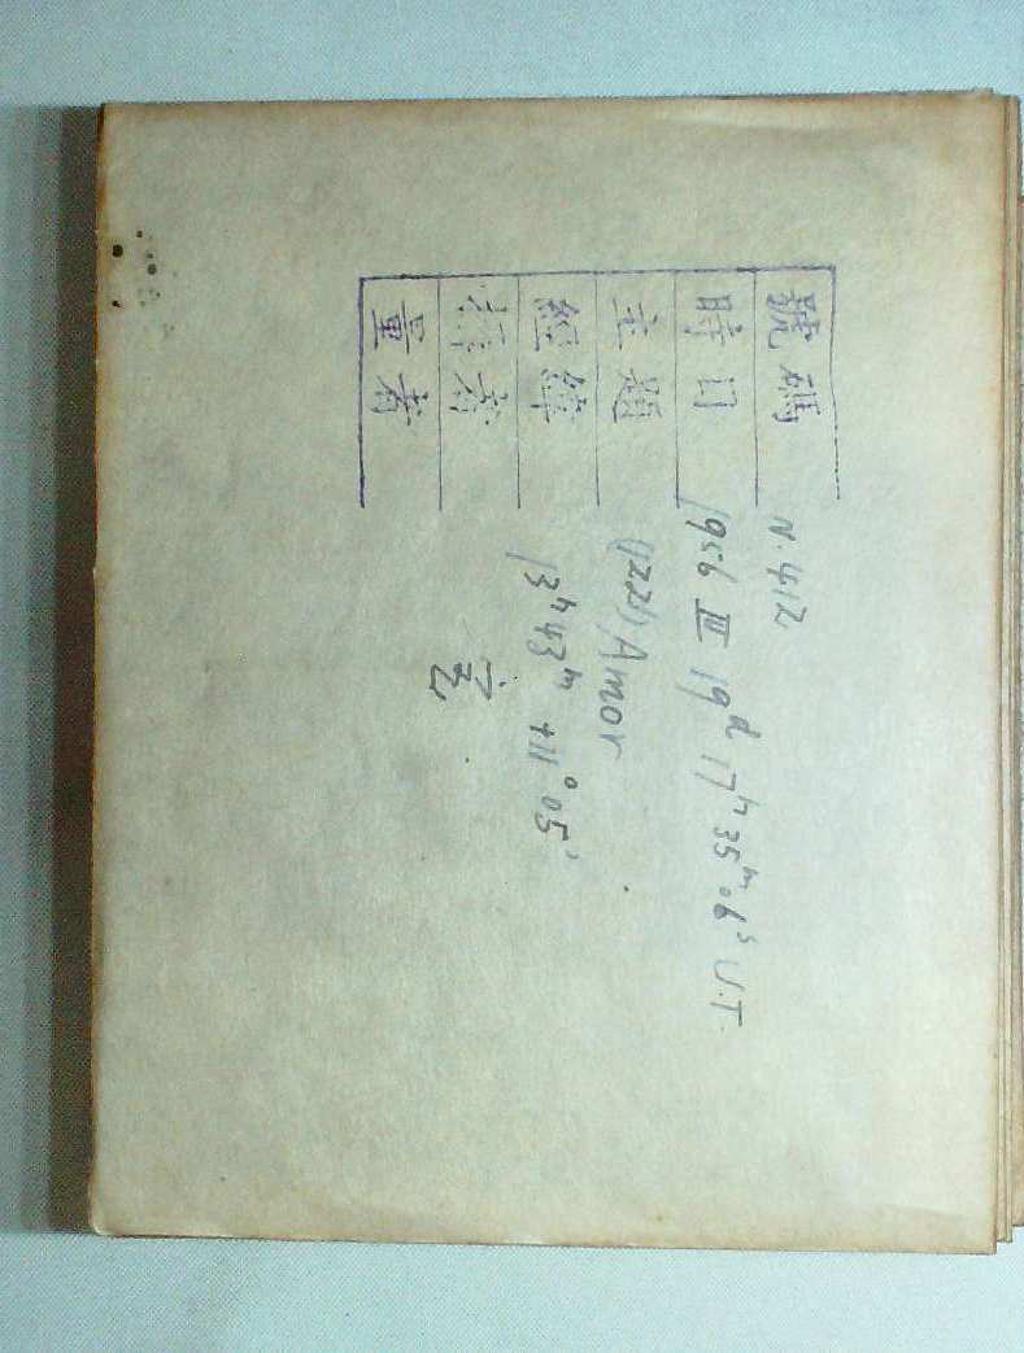 號碼 N.412
時日 1956 III 19d 17h 35m 06s U.T.
主題 (1221) Amor
經緯 13h43m +11°05'
量者